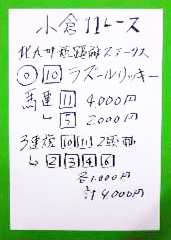 小倉11レース
北九州短距離ステークス
◎ 10 ラズールリッキー
馬連 11 4,000円
↳ 5 2,000円
3連複 10 11 2頭軸
↳ 2 3 4 6
各1,000円
計4,000円